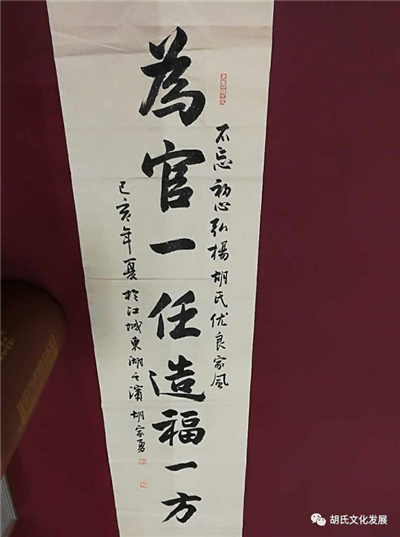 不忘初心弘楊胡氏优良家风
為官一任造福一方
己亥年夏於江城東湖之濱胡家勇
胡氏文化发展